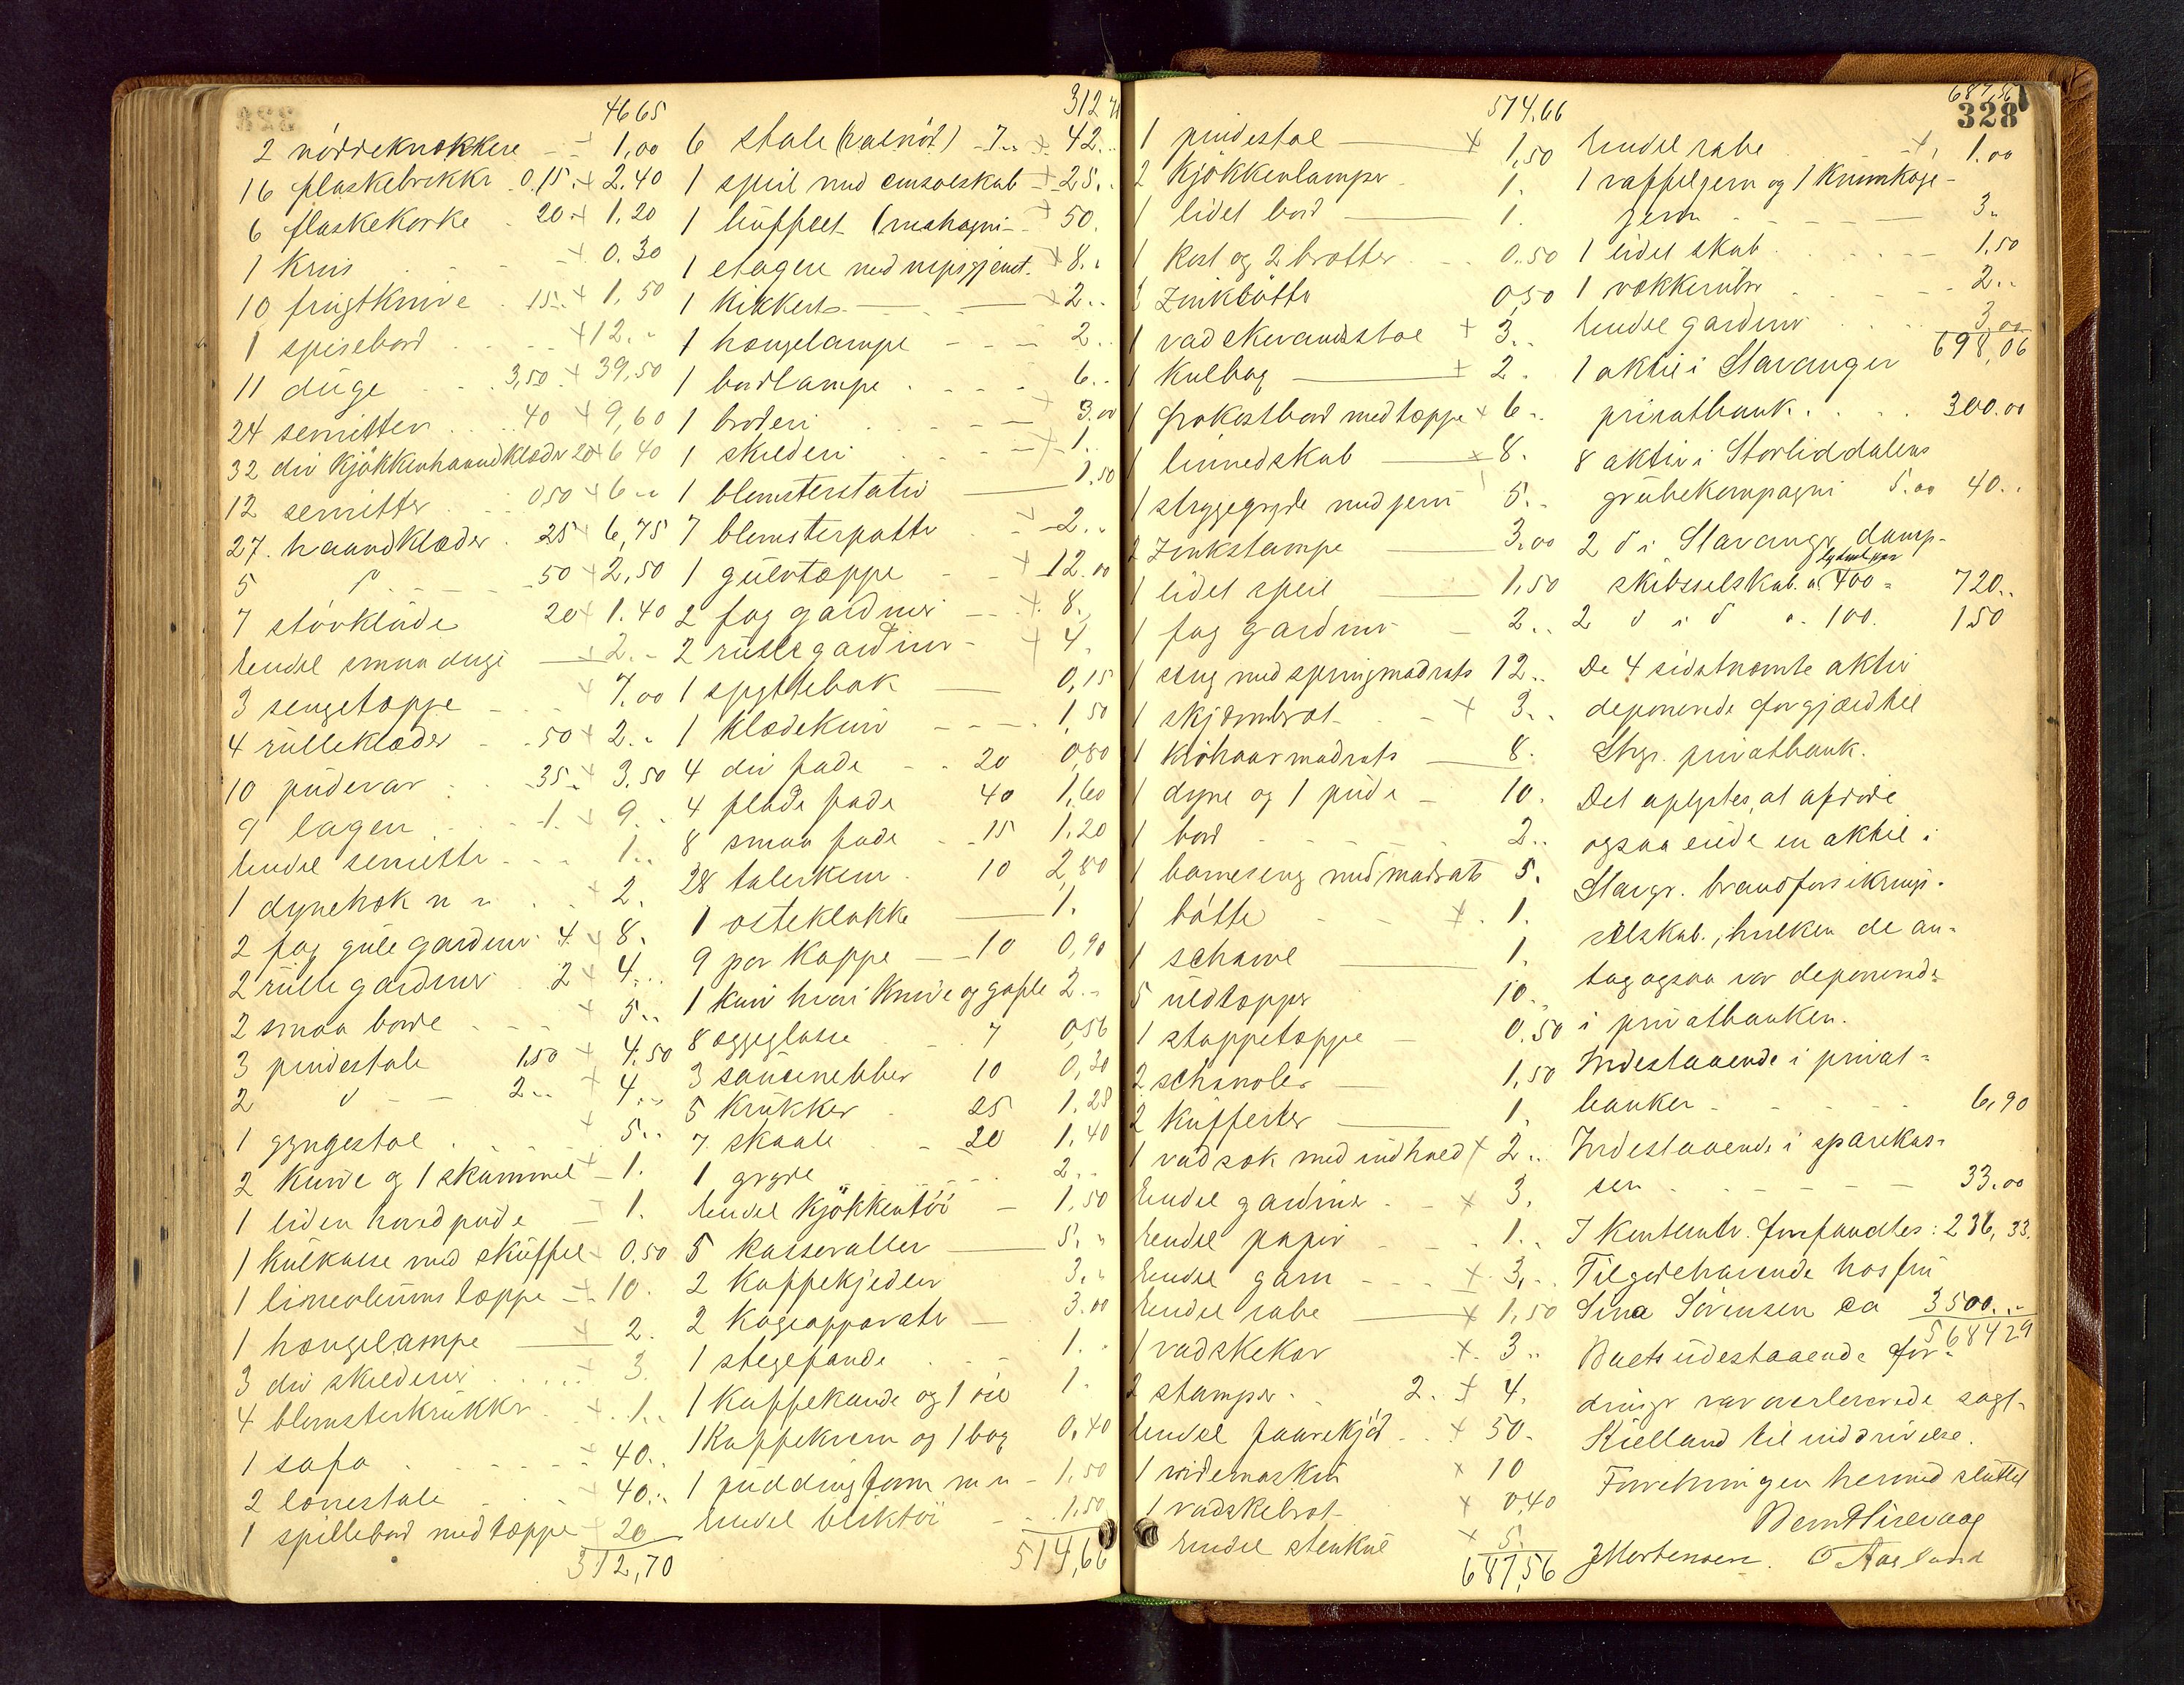 46 65
2 nøddeknækkere - + 1,00
16 flaskebrikker 0,15 + 2.40
6 flaskekorke 20 + 1,20
1 krus + 0.30
10 frugtknive 15 + 1,50
1 spisebord + 12..
11 duge 3,50 + 39,50
24 servietter 40 + 9,60
32 div kjøkkenhaandklæder 20 + 6 40
12 servietter 0,50 + 6 ..
27. haandklæder 25 + 6,75
5 d 50 + 2,50
7 støvklude 20 + 1.40
Endel smaa duge + 2. -
3 sengetæpper + 7.00
4 rulleklæder 50 + 2..
10 pudevar 35 + 3,50
9 lagen 1. + 9..
Endel servietter 1..
1 dynetræk m n + 2.
2 fag gule gardiner 4 + 8.
2 rulle gardiner 2 + 4..
2 smaa borde + 5..
3 pindestole 1,50 + 4.50
2 d 2.. + 4..
1 gyngestol + 5..
2 kurve og 1 skammel + 1.
1 liden hovedpude 1.
1 kulkasse med skuffel 0.50
1 linoleums tæppe + 10.
1 hængelampe + 2.
3 div skilderier + 3.
4 blomsterkrukker + 1..
1 sofa + 40..
2 lænestole 40..
1 spillebord med tæppe + 20
312,70
312 70
6 stole (valnøt) 7.. + 42..
1 speil med consolskab + 25..
1 büffeet (mahogni + 50.
1 etagere med nipsgjenst. + 8..
1 kikkert + 2..
1 hængelampe 2..
1 bordlampe 6..
1 broderi + 3.00
1 skilderi + 1.
1 blomsterstativ 1,50
7 blomsterpotter + 2..
1 gulvtæppe + 12.00
2 fag gardiner + 8.
2 rulle gardiner + 4.
1 spyttebak 0,15
1 klædekurv 1,50
4 div fade 20 0,80
4 flade fade 40 1,60
8 smaa fade 15 1.20
28 talerkener 10 2,80
1 osteklokke 1.
9 par kopper 10 0,90
1 kurv hvori knive og gafle 2..
8 eggeglasse 7 0,56
3 saucenebber 10 0,30
5 krukker 25 1.25
7. skaale 20 1,40
1 gryde 2..
Endel kjøkkentøi 1,50
5 kasseroller 5..
2 kaffekjedler 3..
2 kogeapparater 3.00
1 stegepande 1.
1 kaffekande og 1 øse 1.
1 kaffekvern og 1 bog 0,40
1 puddingform m n 1,50
Endel bliktøi 1.50
514,66
574.66
1 pindestol + 1,50
2 kjøkkenlamper 1.
1 lidet bord 1.
1 kost og 2 brætter 0.50
1 zinkbøtte 0,50
1 vadskevandsstol + 3..
1 kulbog + 2.
1 frokostbord med tæppe + 6..
1 linnedskab + 8.
1 strygegryde med jern 5..
2 zinkstampe 3.00
1 lidet speil 1,50
1 fag gardiner 2..
1 seng med springmadrats 12..
1 skjærmbræt + 3..
1 krøhaarmadrats 8.
1 dyne og 1 pude 10.
1 bord 2..
1 barneseng med madrats 5.
1 bøtte + 1.
1 schawl 1.
5 uldtæpper 10..
1 stoppetæppe 0.50
2 schawler 1,50
2 kufferter 1.
1 vadsæk med indhold + 2..
Endel gardiner + 3.
Endel papir 1..
Endel garn + 3..
Endel sæbe + 1,50
1 vadskekar + 3..
2 stamper 2. + 4.
Endel faarekjød + 50.
1 vridemaskin + 10
1 vadskebræt + 0,40
Endel stenkul + 5.
687,56
687,56
328
Endel sæbe + 1.00
1 vaffeljern og 1 krumkage-
jern 3..
1 lidet skab 1.50
1 vækkeruhr 2..
Endel gardiner 3,00
698,06
1 aktie i Stavanger
privatbank. 300.00
8 aktier i Storliddalens
grubekompagni 5.00 40..
2 d i Stavanger damp-
skibsselskab a 400 = 720..
2 d i d a 100. 150
De 4 sidstnævnte aktier
deponerede for gjæld til
Stvgr. privatbank.
Det oplystes, at afdøde
ogsaa eiede en aktie i
Stavgr. brandforsikrings-
selskab., hvilken de an-
tog ogsaa var deponeret
i privatbanken.
Indestaaende i privat-
banken 6,90
Indestaaende i sparekas-
sen 33.00
I kontanter forefandtes: 236,33
Tilgodehavende hos fru
Sina Sørensen ca 3500..
5684 29
Boets udestaaende for-
dringer var overleverede sagf.
Kielland til inddrivelse.
Forretningen hermed sluttet
Bernt Hirevaag
J Mortensen. O Aarland